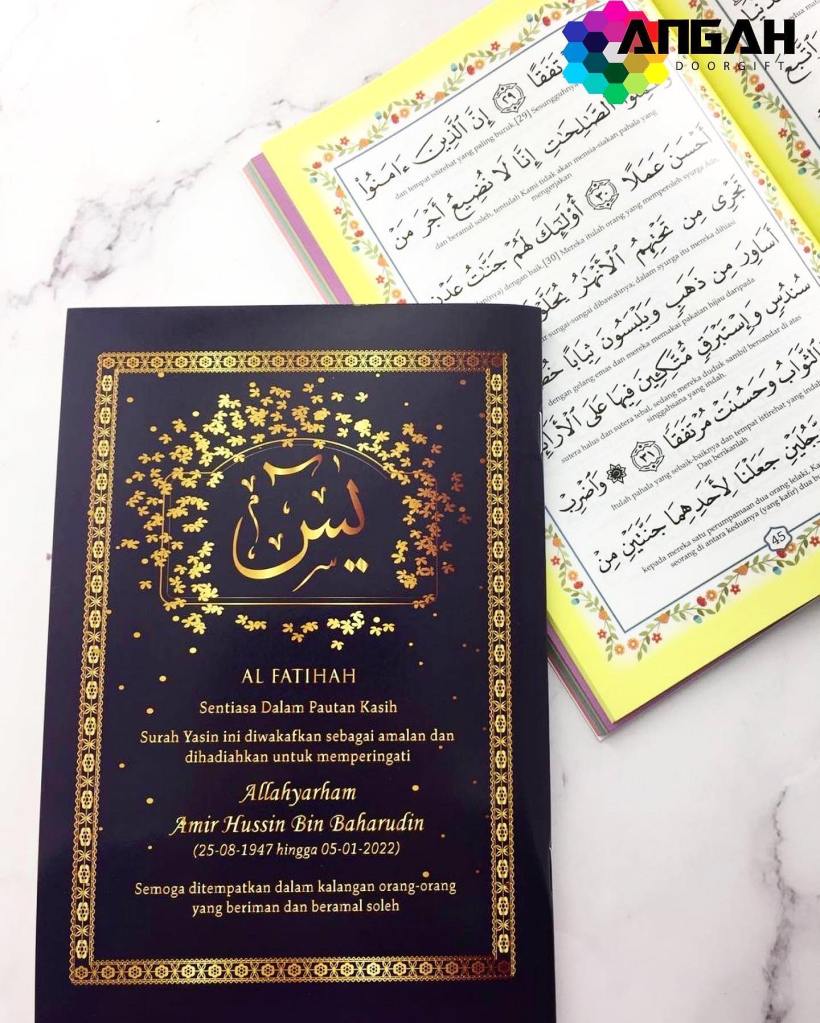 ANGAH
DOORGIFT
تَفَقًا ٢٩ إِنَّ ٱلَّذِينَ ءَامَنُوا۟
dan tempat istirehat yang paling buruk.[29] Sesungguhnya
ٱلصَّٰلِحَٰتِ إِنَّا لَا نُضِيعُ أَجْرَ مَنْ
dan beramal soleh, tentulah Kami tidak akan mensia-siakan pahala yang
mengerjakan
أَحْسَنَ عَمَلًا ٣٠ أُو۟لَٰٓئِكَ لَهُمْ جَنَّٰتُ عَدْنٍ
dengan baik.[30] Mereka itulah orang yang memperoleh syurga Adn,
تَجْرِى مِن تَحْتِهِمُ ٱلْأَنْهَٰرُ يُحَلَّوْنَ
sungai-sungai dibawahnya; dalam syurga itu mereka dihiasi
أَسَاوِرَ مِن ذَهَبٍ وَيَلْبَسُونَ ثِيَابًا
dengan gelang emas dan mereka memakai pakaian hijau daripada
سُندُسٍ وَإِسْتَبْرَقٍ مُّتَّكِـِٔينَ فِيهَا عَلَى ٱلْأَرَآئِكِ
sutera halus dan sutera tebal, sedang mereka duduk sambil bersandar di atas
singgahsana yang indah.
ٱلثَّوَابُ وَحَسُنَتْ مُرْتَفَقًا ٣١ وَٱضْرِبْ
Itulah pahala yang sebaik-baiknya dan tempat istirehat yang indah
Dan berikanlah
رَّجُلَيْنِ جَعَلْنَا لِأَحَدِهِمَا جَنَّتَيْنِ مِنْ
kepada mereka satu perumpamaan dua orang lelaki,
seorang di antara keduanya (yang kafir) dua
45
يسٓ
AL FATIHAH
Sentiasa Dalam Pautan Kasih
Surah Yasin ini diwakafkan sebagai amalan dan
dihadiahkan untuk memperingati
Allahyarham
Amir Hussin Bin Baharudin
(25-08-1947 hingga 05-01-2022)
Semoga ditempatkan dalam kalangan orang-orang
yang beriman dan beramal soleh